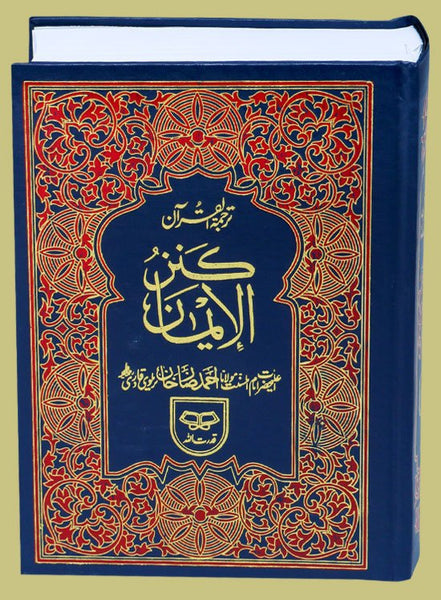 ترجمۃ القرآن
كنز
الإيمان
اعلیٰحضرت امام اہلسنت مولانا احمد رضا خان بریلوی قادری
قدرت اللہ